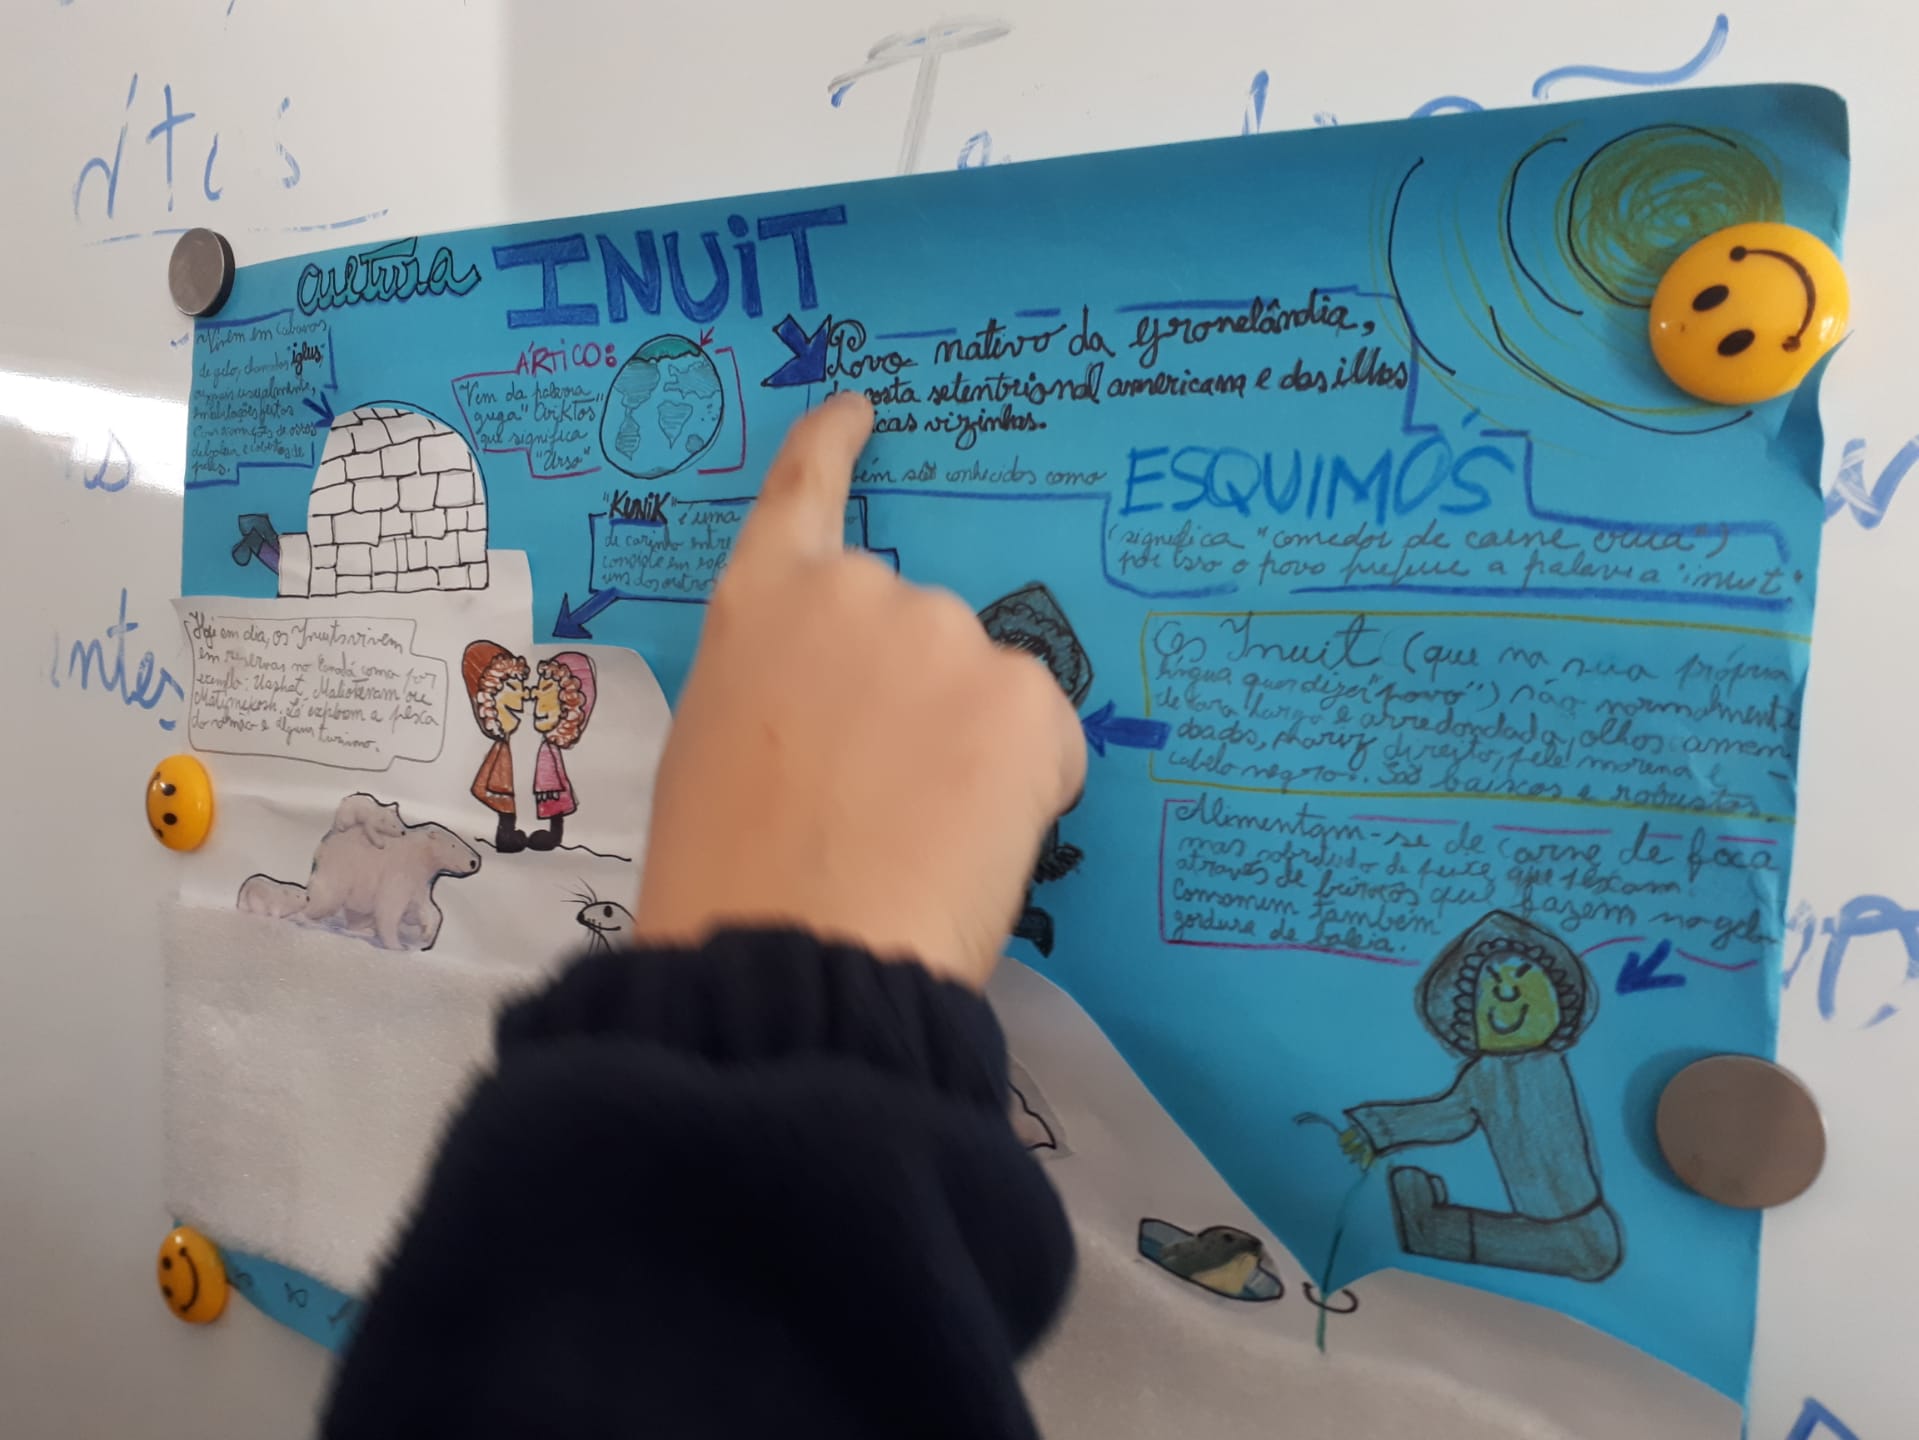 cultura INUIT
Vivem em cabanas
de gelo, chamadas "iglus"
ou mais usualmente,
em habitações feitas
com armações de ossos
de baleia e cobertas de
peles.
ÁRTICO:
Vem da palavra
"Árktos"
que significa
"Urso"
Povo nativo da Gronelândia,
da costa setentrional americana e das ilhas
vizinhas.
são conhecidos como
ESQUIMÓS
(significa "comedor de carne crua")
por isso o povo prefere a palavra "inuit".
"KUNIK" é uma
de carinho entre
consiste em
Hoje em dia, os Inuits vivem
em reservas no Canadá como por
exemplo: Uashat, Maliotenam ou
Matimekosh. Lá exploram a pesca
do salmão e algum turismo.
Os Inuit (que na sua própria
língua quer dizer "povo") são normalmente
de cara larga e arredondada, olhos amen-
doados, nariz direito, pele morena e
cabelo negro. São baixos e robustos.
Alimentam-se de carne de foca
mas sobretudo de peixe que pescam
através de buracos que fazem no gelo
Consomem também
gordura de baleia.